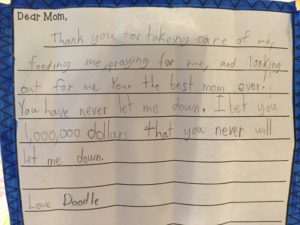 Dear Mom,
Thank you for takeing care of me,
feeding me, praying for me, and looking
out for me. Your the best mom ever.
You have never let me down. I bet you
1,000,000 dollars that you never will
let me down.
Love Doodle